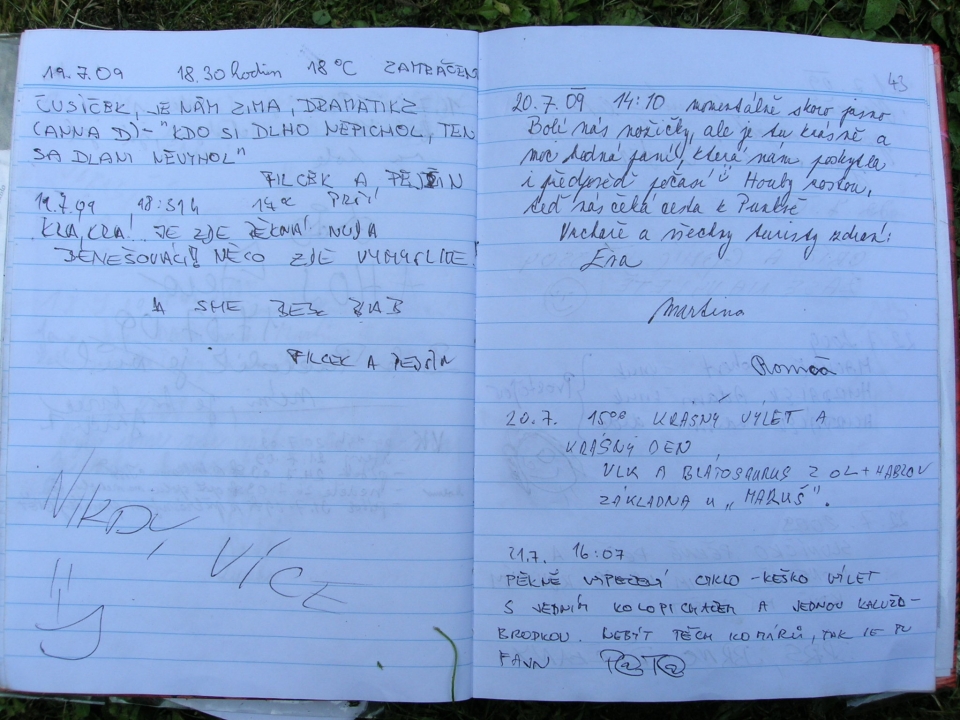 19.7.09 18.30 hodin 18°C ZAMRÁČEN
ČUSÍČEK, JE NÁM ZIMA, DRAMATIKZ
(ANNA D)-"KDO SI DLHO NEPICHOL, TEN
SA DLANI NEVYHOL"
FILCEK A PEJSIN
19.7.09 18:51h 14°C PRŠÍ
KRA, KRA! JE ZDE PĚKNÁ! NUDA
BENEŠOVÁCI! NĚCO ZDE VYMYSLITE.
A SME BEZ ŽIAB
FILCEK A PEJSIN
NIKDY
VÍCE
43
20.7.09 14:10 momentálně skoro jasno
Bolí nás nožičky, ale je tu krásně a
moc hodná paní, která nám poskytla
i předpověď počasí Houby rostou,
teď nás čeká cesta k Punkvě
Vrchaře a všechny turisty zdraví:
Eva
Martina
Romča
20.7. 15°° KRÁSNÝ VÝLET A
KRÁSNÝ DEN
VLK A BLATOSAURUS Z OL+HABLOV
ZÁKLADNA U „MARUŠ".
21.7. 16:07
PĚKNĚ VYPEČENÝ CYKLO-KEŠKO VÝLET
S JEDNÍM KOLOPICHAČEM A JEDNOU KALUŽO-
BRODKOU. NEBÝT TĚCH KOMÁRŮ, TAK JE TU
FAVN P@T@